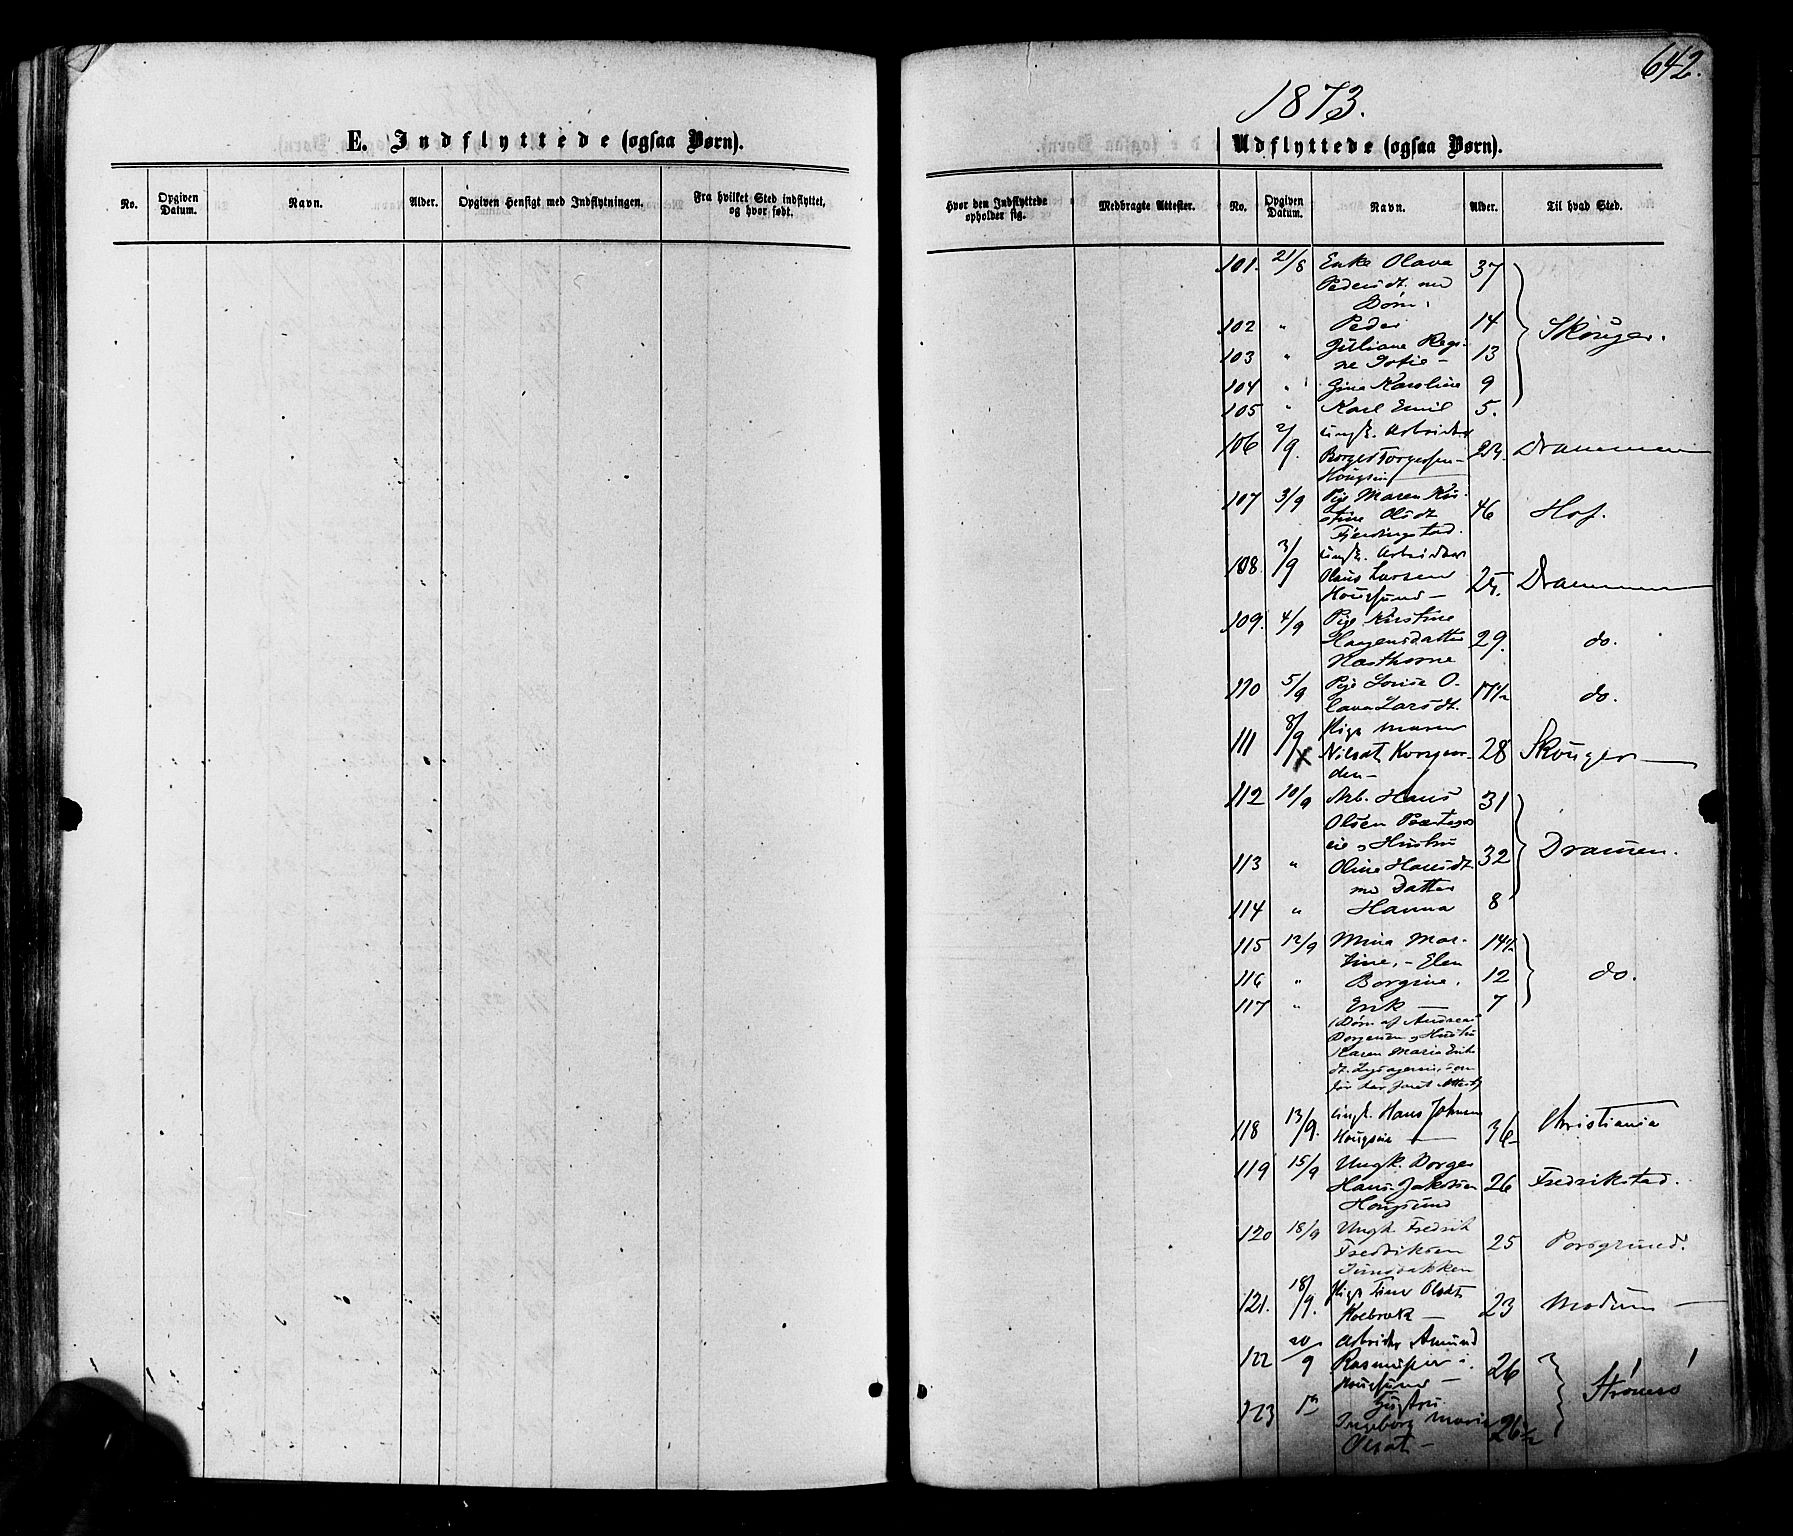 642.
1873.
E. Indflyttede (ogsaa Børn).
No.
Opgiven Datum.
Navn.
Alder.
Opgiven Hensigt med Indflytningen.
Fra hvilket Sted indflyttet, og hvor født.
Hvor den Indflyttede opholder sig.
Medbragte Attester.
Udflyttede (ogsaa Børn).
No.
Opgiven Datum.
Navn.
Alder.
Til hvad Sted.
101. 21/8 Enke Olava 37
Pedersdt. med
Børn,
102 " Peder 14 Skouger.
103 " Juliane Regi-
ne Sofie – 13
104 " Gina Karoline 9
105 " Karl Emil 5.
106 2/9. Ungk. Arbeider
Borger Torgersen – 23. Drammen
107 3/9 Pige Maren Kri-
stine Olsdt 46 Hof.
Fjerdingstad.
108 3/9 Ungk. Arbeider
Olaus Larsen 25. Drammen
Hougsund –
109. 4/9 Pige Kristine
Haagensdatter 29. do.
110 5/9 Pige Lovise O-
lava Larsdt. 17 1/2 do.
111 8/9 Pige Maren
Nilsdt. 28 Skouger
den –
112 10/9 Arb. Hans 31
Olsen
eie, Hustru
113 " Oline Hansdt. 32 Dramen.
med Datter
114 " Hanna 8
115 12/9 Mina Mar- 14 1/2
tine, – Elen
116 " Borgine, 12 do.
117 " Erik – 7
(Børn af Andreas
Borgersen, Hustru
Karen Marie Erik-
118 13/9. Ungk. Hans Johnsen
Hougseie 36 Christiania
119 15/9 Ungk. Borger
Hans. Jakobsen 26 Fredrikstad.
Hougsund
120 18/9 Ungk. Fredrik
Fredriksen 25 Porsgrund.
121. 18/9. Pige Olsdt.
23 Modum –
122 20/9 Arbeider Amund
Rasmussen i 26
Hougsund – Strømsø
123 Hustru
Ingeborg Marie 26 1/2
Olsdt –